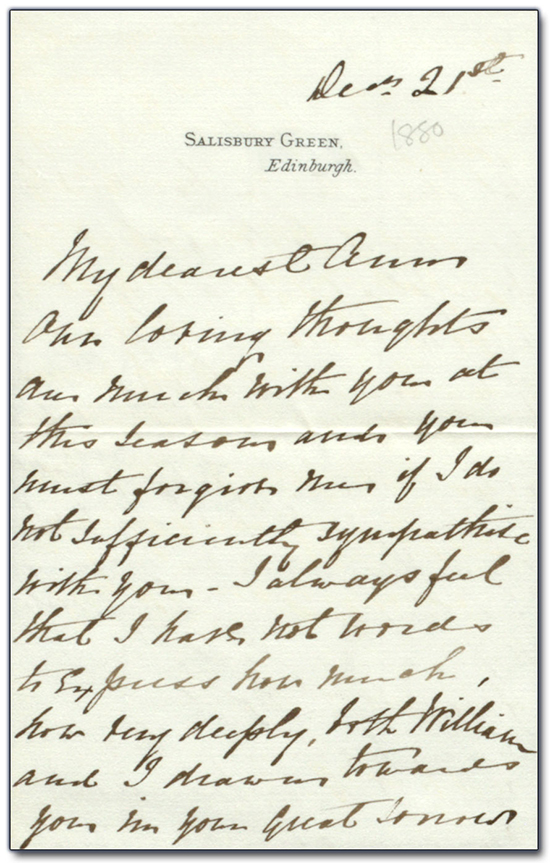 Decr 21st
SALISBURY GREEN,
1880
Edinburgh.
My dearest Anna
Our loving thoughts
are much with you at
this season and you
must forgive me if I do
not sufficiently sympathise
with you - I always feel
that I have not words
to express how much,
how very deeply, both William
and I drawn towards
you in your great sorrow